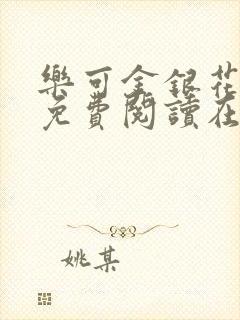 樂可金銀花
免費閱讀在
姚某